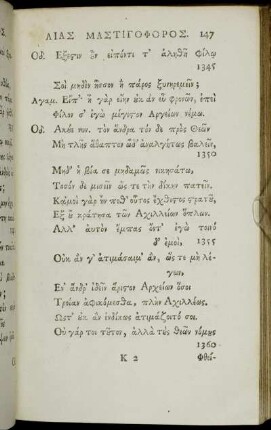 ΑΙΑΣ ΜΑΣΤΙΓΟΦΟΡΟΣ. 147
Οδ. Εξεστιν ὂν εἰπόντι τ' ἀληθῆ φίλῳ
1345
Σοὶ μηδὲν ἧσσον ἢ πάρος ξυνηρεμεῖν;
Αγαμ. Εἴπ'· ἦ γὰρ εἴην ἐκ ἂν εὖ φρονῶν, ἐπεὶ
Φίλον σ' ἐγὼ μέγιστον Αργείων νέμω.
Οδ. Ακυέ νυν. τὸν ἄνδρα τόν δε πρὸς Θεῶν
Μὴ τλῇς ἄθαπτον ὧδ' ἀναλγήτως βαλεῖν,
1350
Μηδ' ἡ βία σε μηδαμῶς νικησάτω,
Τοσόν δε μισεῖν ὥς τε τὴν δίκην πατεῖν.
Κᾀμοὶ γὰρ ἦν ποθ' οὗτος ἔχθιστος στρατῦ,
Εξ ὗ κράτησα τῶν Αχιλλείων ὅπλων.
Αλλ' αὐτὸν ἔμπας ὄντ' ἐγὼ τοιόν
δ' ἐμοὶ, 1355
Οὐκ ἄν γ' ἀτιμάσαιμ' ἂν, ὥς τε μὴ λέ-
γειν,
Εν' ἄνδρ' ἰδεῖν ἄριστον Αργείων ὅσοι
Τροίαν ἀφικόμεσθα, πλὴν Αχιλλέως.
Ωστ' ἐκ ἂν ἐνδίκως ἀτιμάζοιτό σοι.
Οὐ γάρ τοι τῦτον, ἀλλὰ τὺς Θεῶν νόμυς
1360
K 2 Φθεί-